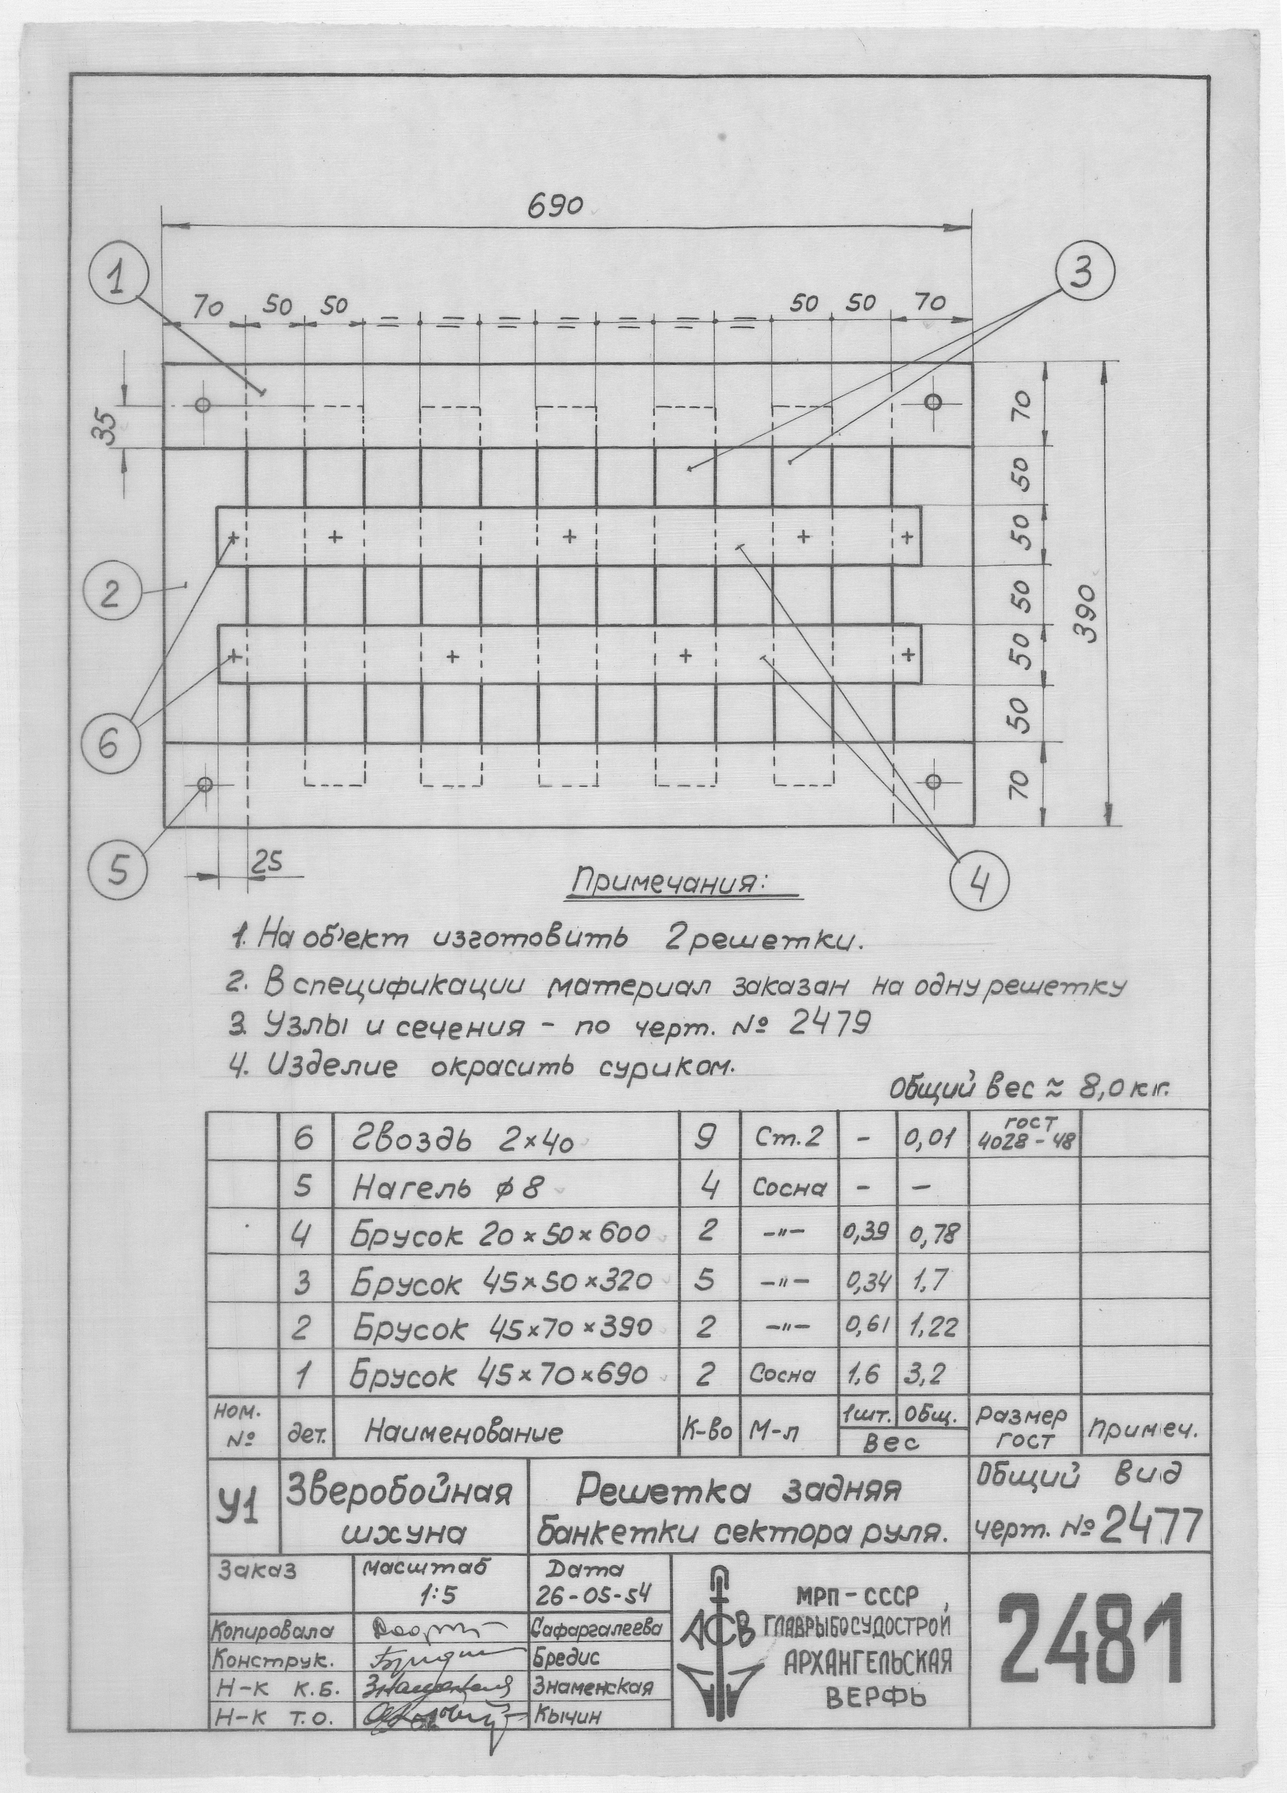 690
1
3
70 50 50 = = = = = = = 50 50 70
35
70
50
50
50
50
50
70
390
2
6
5
25
4
Примечания:
1. На об'ект изготовить 2 решетки.
2. В спецификации материал заказан на одну решетку
3. Узлы и сечения - по черт. № 2479
4. Изделие окрасить суриком.
Общий вес ≈ 8,0 кг.
6 Гвоздь 2×40 9 Ст.2 - 0,01 гост 4028-48
5 Нагель ϕ8 4 Сосна - -
4 Брусок 20×50×600 2 -"- 0,39 0,78
3 Брусок 45×50×320 5 -"- 0,34 1,7
2 Брусок 45×70×390 2 -"- 0,61 1,22
1 Брусок 45×70×690 2 Сосна 1,6 3,2
ном. № дет. Наименование К-во М-л 1шт. Общ. Вес Размер гост Примеч.
У1
Зверобойная
шхуна
Решетка задняя
банкетки сектора руля.
Общий вид
черт. № 2477
Заказ
масштаб
1:5
Дата
26-05-54
Копировала Сафаргалеева
Конструк. Бредис
Н-к К.Б. Знаменская
Н-к Т.О. Кычин
АСВ
МРП-СССР,
ГЛАВРЫБОСУДОСТРОЙ
АРХАНГЕЛЬСКАЯ
ВЕРФЬ
2481